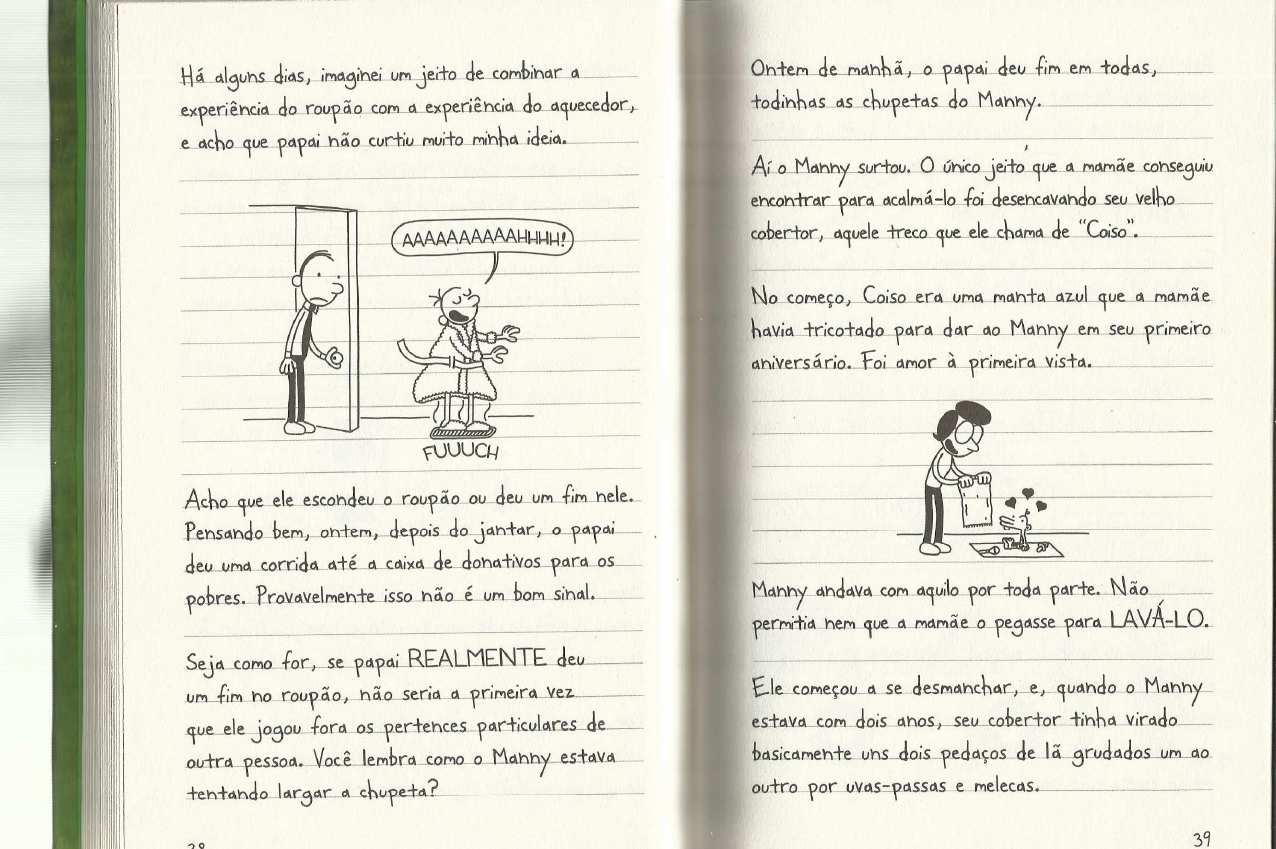 Há alguns dias, imaginei um jeito de combinar a
experiência do roupão com a experiência do aquecedor,
e acho que papai não curtiu muito minha ideia.
AAAAAAAAAAHHHH!
FUUUCH
Acho que ele escondeu o roupão ou deu um fim nele.
Pensando bem, ontem, depois do jantar, o papai
deu uma corrida até a caixa de donativos para os
pobres. Provavelmente isso não é um bom sinal.
Seja como for, se papai REALMENTE deu
um fim no roupão, não seria a primeira vez
que ele jogou fora os pertences particulares de
outra pessoa. Você lembra como o Manny estava
tentando largar a chupeta?
Ontem de manhã, o papai deu fim em todas,
todinhas as chupetas do Manny.
Aí o Manny surtou. O único jeito que a mamãe conseguiu
encontrar para acalmá-lo foi desencavando seu velho
cobertor, aquele treco que ele chama de "Coiso".
No começo, Coiso era uma manta azul que a mamãe
havia tricotado para dar ao Manny em seu primeiro
aniversário. Foi amor à primeira vista.
Manny andava com aquilo por toda parte. Não
permitia nem que a mamãe o pegasse para LAVÁ-LO.
Ele começou a se desmanchar, e, quando o Manny
estava com dois anos, seu cobertor tinha virado
basicamente uns dois pedaços de lã grudados um ao
outro por uvas-passas e melecas.
39